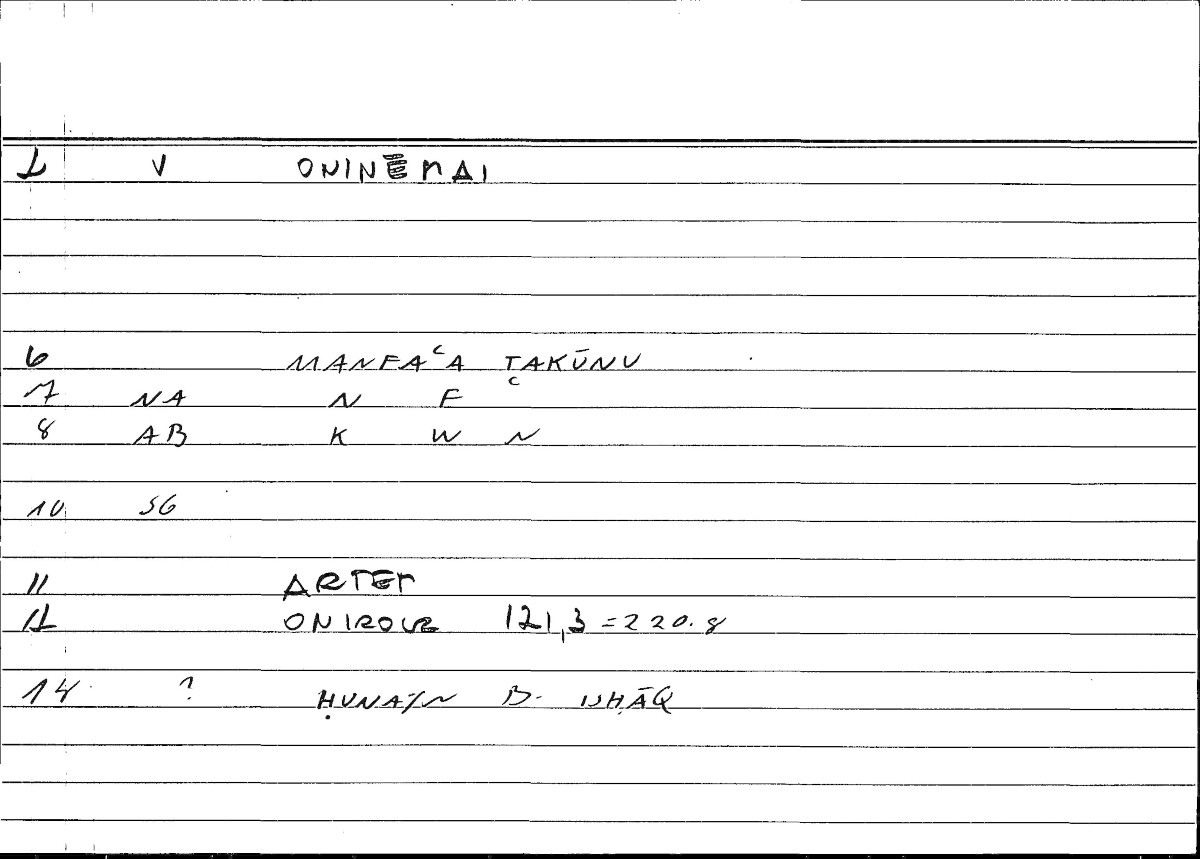 1 V ONINĒMAI
6 MANFAʿA TAKŪNU
7 NA N F
8 AB K W N
10 SG
11 ARTEM
12 ONIROCR 121,3 = 220.8
14 ? ḤUNAYN B. ISḤĀQ